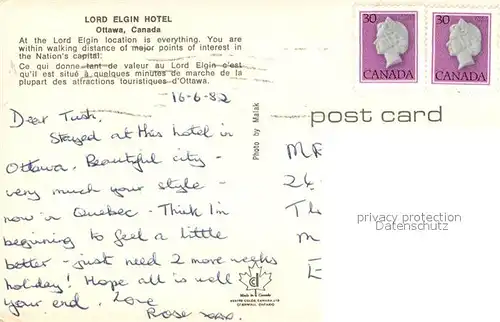 LORD ELGIN HOTEL
Ottawa, Canada
At the Lord Elgin location is everything. You are
within walking distance of major points of interest in
the Nation's capital.
Ce qui donne tant de valeur au Lord Elgin c'est
qu'il est situé à quelques minutes de marche de la
plupart des attractions touristiques d'Ottawa.
30
CANADA
30
CANADA
16-6-82
post card
Photo by Malak
Dear Tush,
Stayed at this hotel in
Ottawa. Beautiful city -
very much your style -
now in Quebec. Think I'm
beginning to feel a little
better - just need 2 more weeks
holiday! Hope all is well
your end. Love
Rose xxx.
M
24
Th
M
E
privacy protection
Datenschutz
Made in Canada